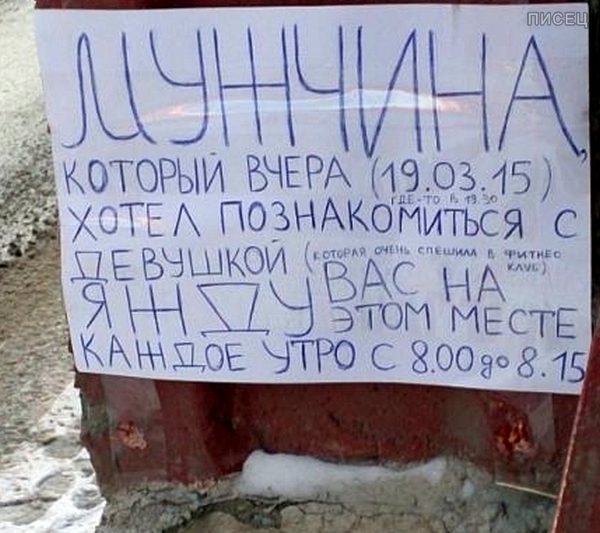 ПИСЕЦ
МУЖЧИНА,
КОТОРЫЙ ВЧЕРА (19.03.15)
ГДЕ-ТО В 19.30
ХОТЕЛ ПОЗНАКОМИТЬСЯ С
ДЕВУШКОЙ (КОТОРАЯ ОЧЕНЬ СПЕШИЛА В ФИТНЕС
КЛУБ)
Я ЖДУ ВАС НА
ЭТОМ МЕСТЕ
КАЖДОЕ УТРО С 8.00 до 8.15